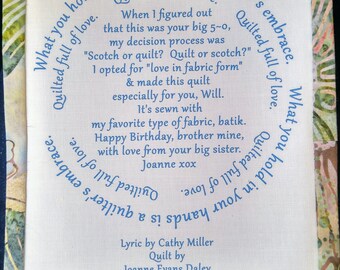 What you hold in your hands is a quilter's embrace.
Quilted full of love.
Quilted full of love.
Quilted full of love.
What you ho
's embrace.
Quilted full of love.
When I figured out
that this was your big 5~0,
my decision process was
"Scotch or quilt?  Quilt or scotch?"
I opted for "love in fabric form"
& made this quilt
especially for you, Will.
It's sewn with
my favorite type of fabric, batik.
Happy Birthday, brother mine,
with love from your big sister.
Joanne xox
Lyric by Cathy Miller
Quilt by
Joanne Evans Daley